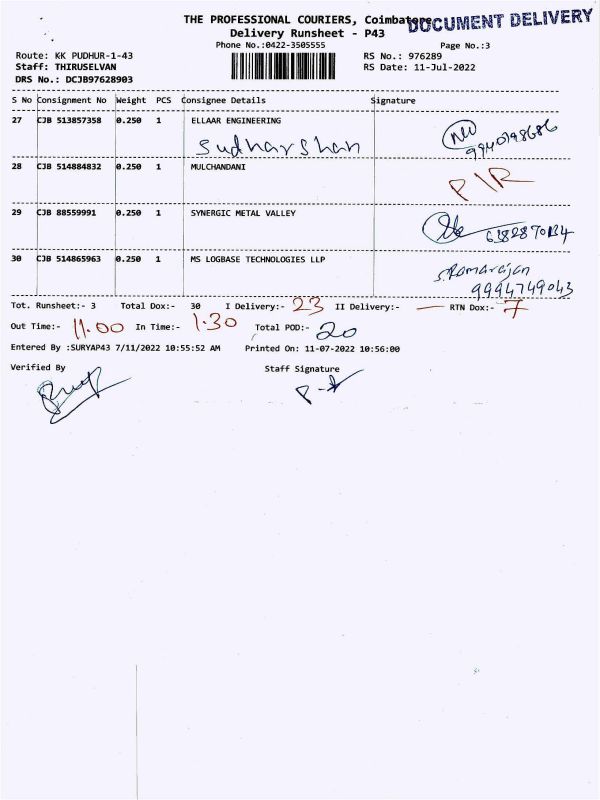 THE PROFESSIONAL COURIERS, Coimbatore
DOCUMENT DELIVERY
Delivery Runsheet - P43
Phone No.:0422-3505555 Page No.:3
Route: KK PUDHUR-1-43 RS No.: 976289
Staff: THIRUSELVAN RS Date: 11-Jul-2022
DRS No.: DCJB97628903
S No Consignment No Weight PCS Consignee Details Signature
27 CJB 513857358 0.250 1 ELLAAR ENGINEERING
Sudharshan
28 CJB 514884832 0.250 1 MULCHANDANI
P\R
29 CJB 88559991 0.250 1 SYNERGIC METAL VALLEY
30 CJB 514865963 0.250 1 MS LOGBASE TECHNOLOGIES LLP
S.Ramarajan
9994749043
Tot. Runsheet:- 3 Total Dox:- 30 I Delivery:- 23 II Delivery:- — RTN Dox:- 7
Out Time:- 11.00 In Time:- 1.30 Total POD:- 20
Entered By :SURYAP43 7/11/2022 10:55:52 AM Printed On: 11-07-2022 10:56:00
Verified By Staff Signature